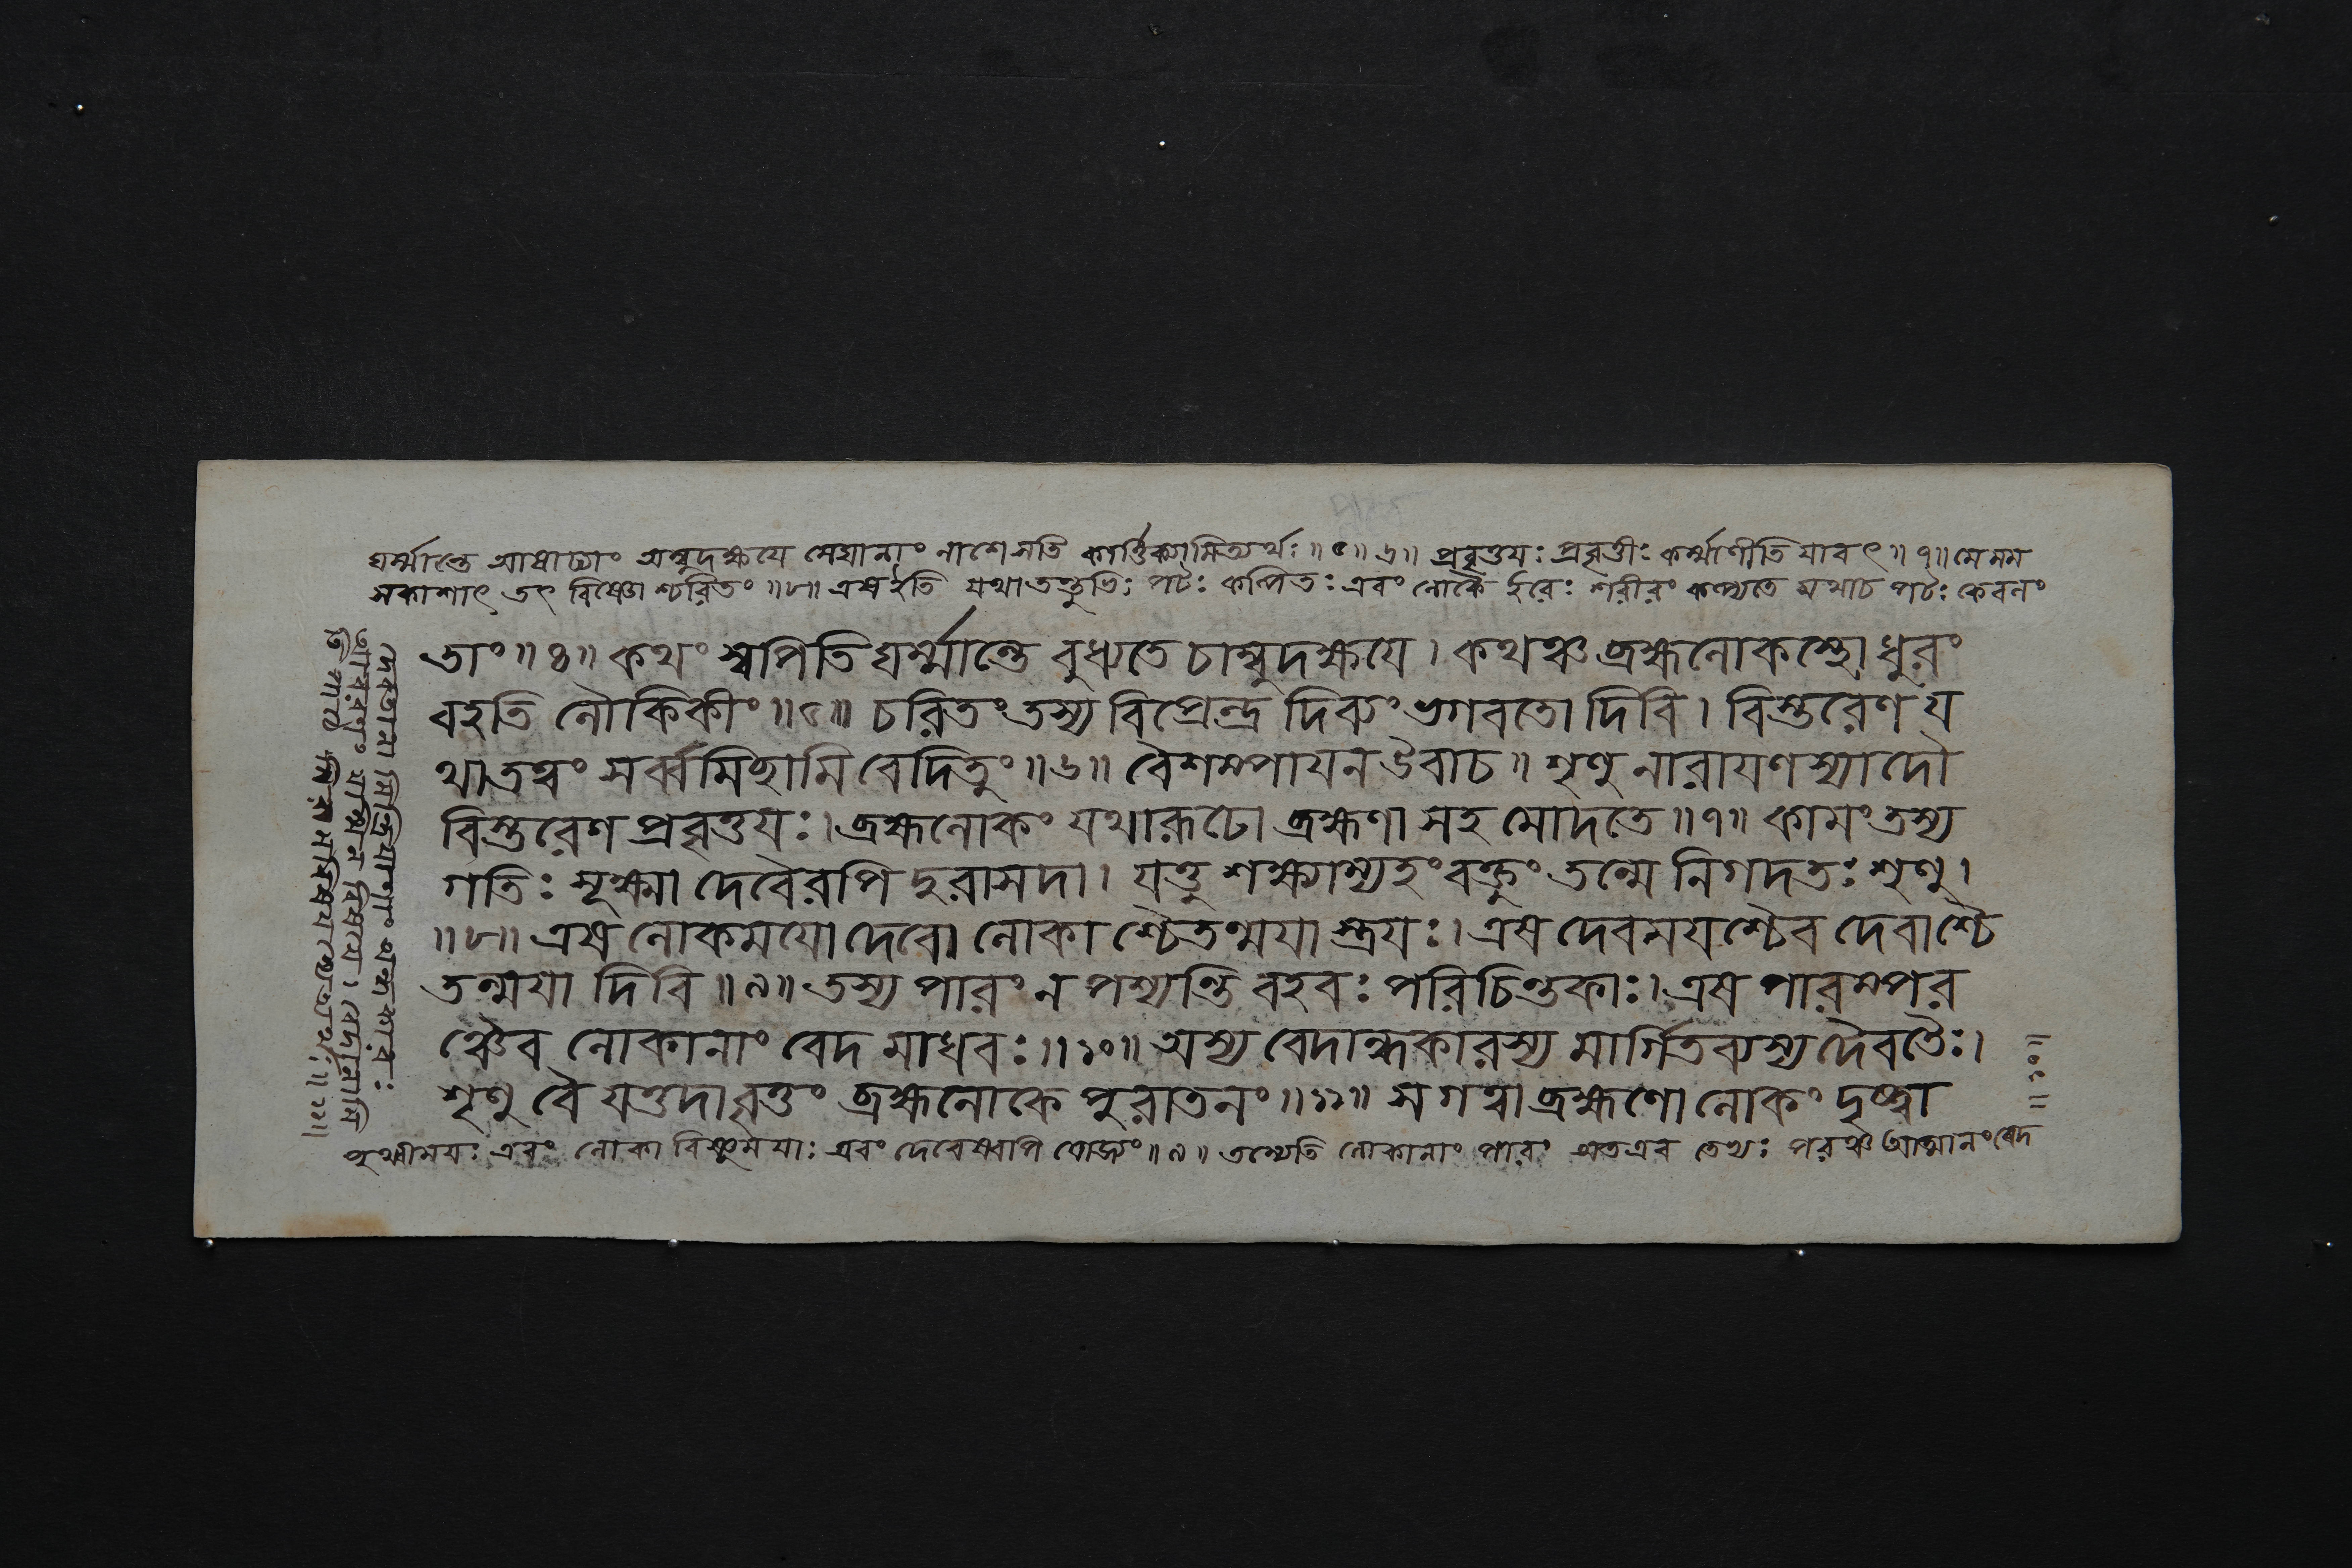 ঘর্ম্মান্তে আষাঢ্যাং অম্বুদক্ষয়ে মেঘানাং নাশে সতি কার্ত্তিক্যামিত্যর্থঃ ॥ ৫ ॥ ৬ ॥ প্রবৃত্তয়ঃ প্রবৃত্তীঃ কর্ম্মাণীতি যাবৎ ॥ ৭ ॥ মে মম
সকাশাৎ তৎ বিষ্ণোশ্চরিতং ॥ ৮ ॥ এষ ইতি যথা তন্তুভিঃ পটঃ কল্পিতঃ এবং লোকৈ র্হরেঃ শরীরং কল্প্যতে যথাচ পটঃ কেবলং
তাং ॥ ৪ ॥ কথং স্বপিতি ঘর্ম্মান্তে বুধ্যতে চাম্বুদক্ষয়ে । কথঞ্চ ব্রহ্মলোকস্থো ধুরং
বহতি লৌকিকীং ॥ ৫ ॥ চরিতং তস্য বিপ্রেন্দ্র দিব্যং ভগবতো দিবি । বিস্তরেণ য
থাতত্বং সর্ব্বমিচ্ছামি বেদিতুং ॥ ৬ ॥ বৈশম্পায়ন উবাচ ॥ শৃণু নারায়ণস্যাদৌ
বিস্তরেণ প্রবৃত্তয়ঃ । ব্রহ্মলোকং যথারূঢো ব্রহ্মণা সহ মোদতে ॥ ৭ ॥ কামং তস্য
গতিঃ সূক্ষ্মা দেবৈরপি দুরাসদা । যত্তু শক্ষ্যাম্যহং বক্তুং তন্মে নিগদতঃ শৃণু ।
॥ ৮ ॥ এষ লোকময়ো দেবো লোকাশ্চৈতন্ময়াস্ত্রয়ঃ । এষ দেবময়শ্চৈব দেবাশ্চৈ
তন্ময়া দিবি ॥ ৯ ॥ তস্য পারং ন পশ্যন্তি বহবঃ পরিচিন্তকাঃ । এষ পারম্পর
ঞ্চৈব লোকানাং বেদ মাধবঃ ॥ ১০ ॥ অস্য বেদান্ধকারস্য মার্গিতব্যস্য দৈবতৈঃ ।
শৃণু বৈ যত্তদাবৃত্তং ব্রহ্মলোকে পুরাতনং ॥ ১১ ॥ স গত্বা ব্রহ্মণো লোকং দৃষ্ট্বা
এবং লোকা বিষ্ণুময়াঃ এবং দেবেষ্বপি যোজ্যং ॥ ৯ ॥ তস্যেতি লোকানাং পারং অতএব তেষাং পরঞ্চ আত্মানং বেদ
দেবতানা মিন্দ্রিয়াণাং অন্ধকারঃ
আবরণং যস্মিন বিষয়ে । বেদানামি
তি পাঠে